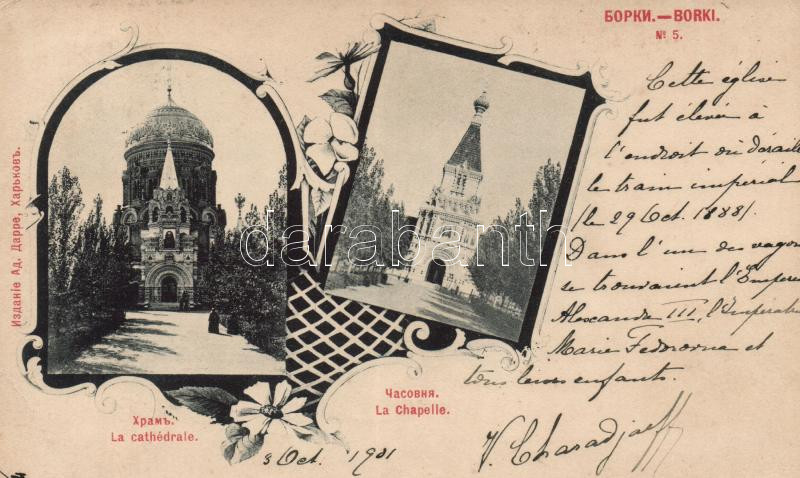 БОРКИ.—BORKI.
№ 5.
Cette église
fut élevée à
l'endroit où dérailla
le train impérial
(le 29 Oct. 1888).
Dans l'un des vagons
se trouvaient l'Empereur
Alexandre III, l'Impératrice
Marie Feodorovna et
tous leurs enfants.
V. Charadjaeff
3 Oct. 1901
Изданіе Ад. Дарре, Харьковъ.
Храмъ.
La cathédrale.
Часовня.
La Chapelle.
darabanth